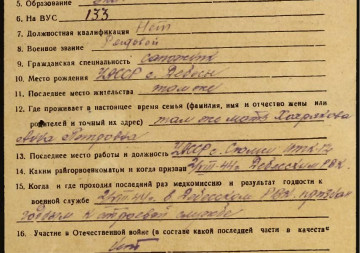 5. Образование
6. На ВУС 133
7. Должностная квалификация Нет
8. Военное звание Рядовой
9. Гражданская специальность сапожник
10. Место рождения УАССР с. Дебесы
11. Последнее место жительства там же
12. Где проживает в настоящее время семья (фамилия, имя и отчество жены или
родителей и точный их адрес) там же мать
Петровна
13. Последнее место работы и должность УАССР с.
14. Каким райгорвоенкоматом и когда призван Дебесским РВК
15. Когда и где проходил последний раз медкомиссию и результат годности к
военной службе в Дебесском РВК признан
годным к строевой службе
16. Участие в Отечественной войне (в составе какой последней части в качестве
нет